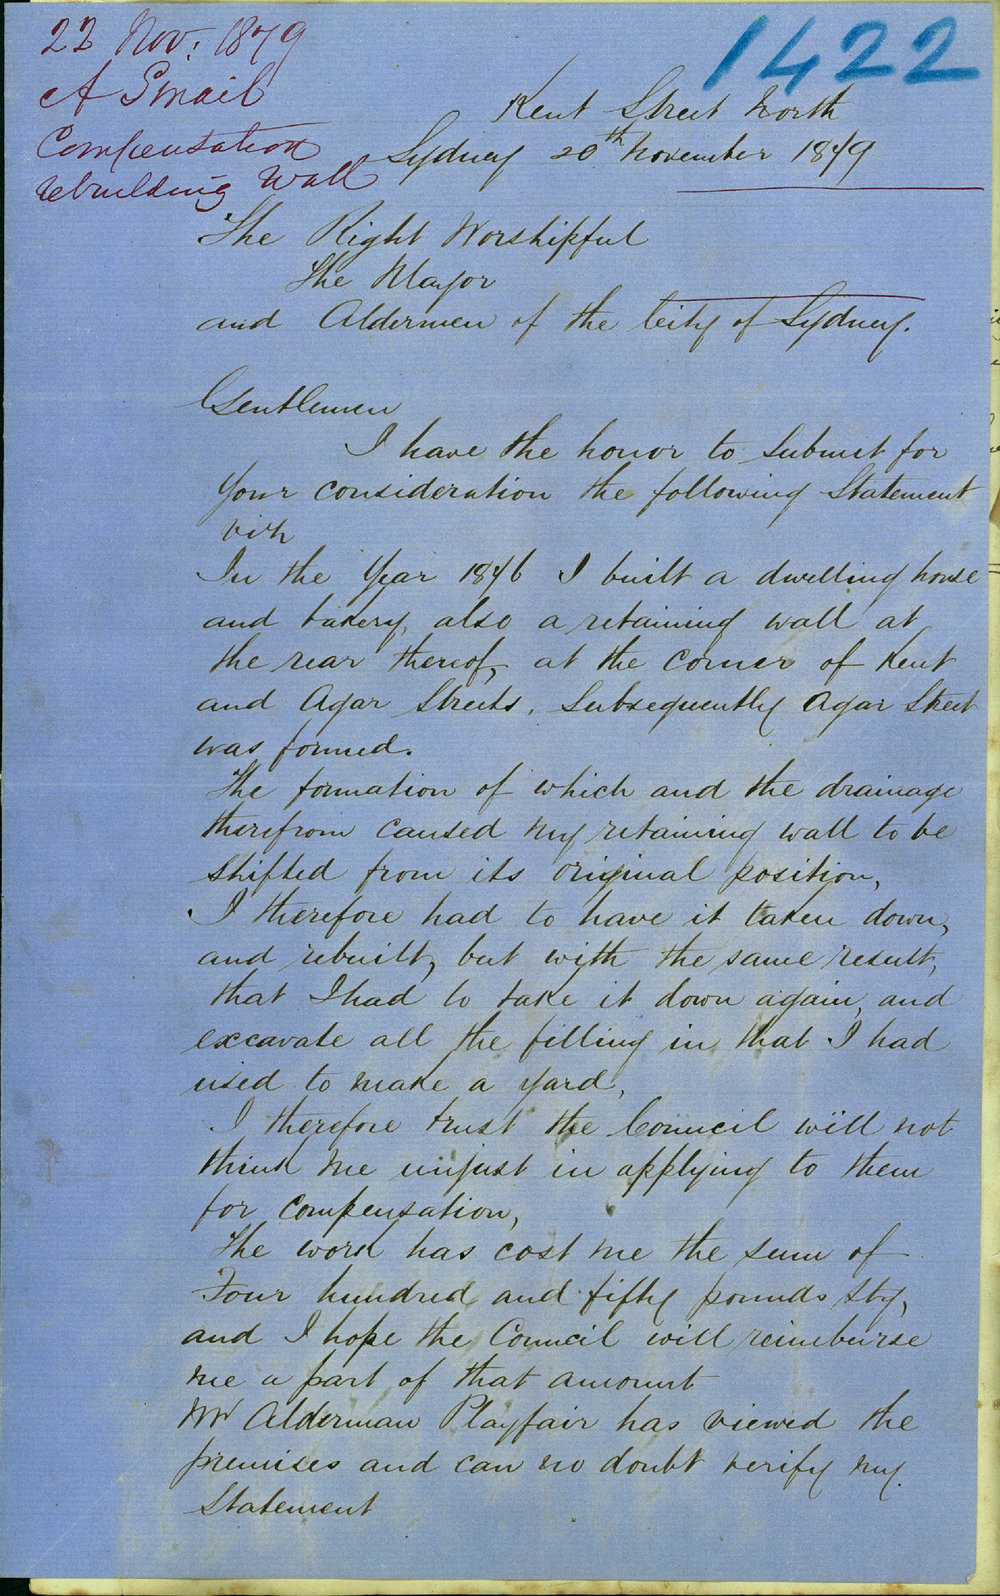 22 Nov: 1879
A Smail
Compensation
rebuilding Wall
1422
Kent Street North
Sydney 20th November 1879
The Right Worshipful
The Mayor
and Aldermen of the City of Sydney.
Gentlemen
I have the honor to Submit for
Your consideration the following Statement
viz
In the Year 1876 I built a dwelling house
and bakery, also a retaining wall at
the rear thereof, at the corner of Kent
and Agar Streets. Subsequently Agar Street
was formed.
The formation of which and the drainage
therefrom caused my retaining wall to be
Shifted from its original position,
I therefore had to have it taken down,
and rebuilt, but with the same result,
that I had to take it down again, and
excavate all the filling in that I had
used to make a yard,
I therefore trust the Council will not
think me unjust in applying to them
for compensation,
The work has cost me the sum of
Four hundred and fifty pounds Stg,
and I hope the Council will reimburse
me a part of that amount
Mr Alderman Playfair has viewed the
premises and can no doubt verify my.
Statement